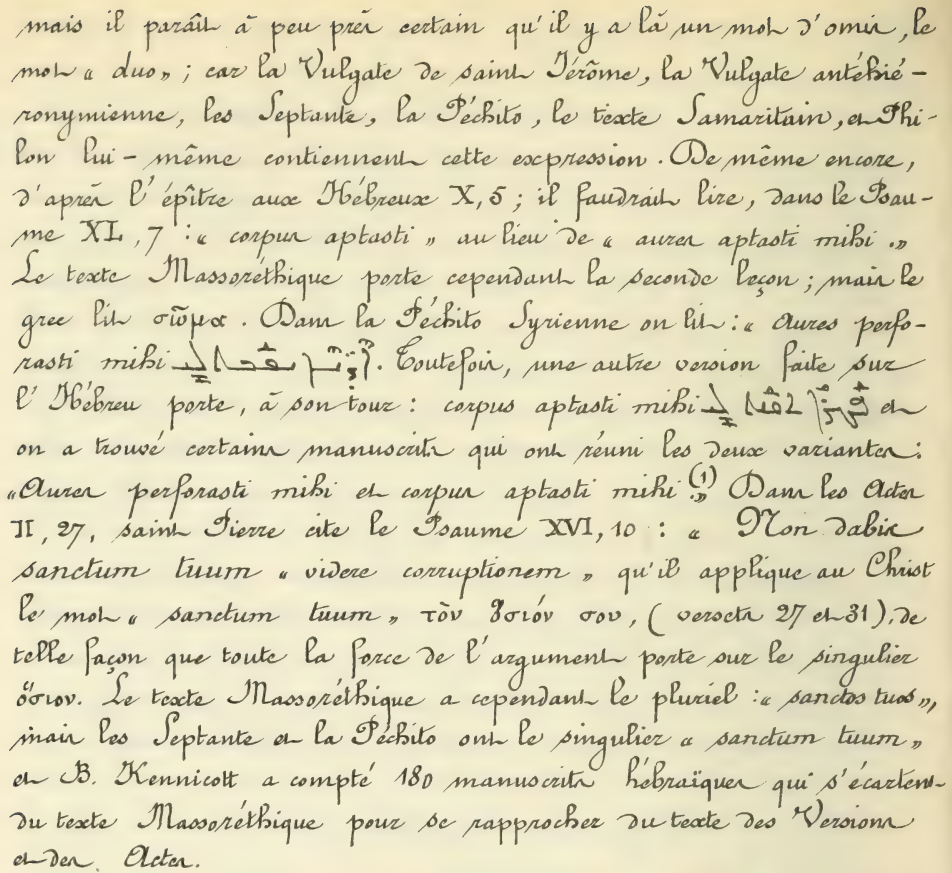 mais il paraît à peu près certain qu'il y a là un mot d'omis, le
mot « duo » ; car la Vulgate de saint Jérôme, la Vulgate antéhié-
ronymienne, les Septante, la Péchito, le texte Samaritain, et Phi-
lon lui-même contiennent cette expression. De même encore,
d'après l'épître aux Hébreux X, 5 ; il faudrait lire, dans le Psau-
me XL, 7 : « corpus aptasti » au lieu de « aures aptasti mihi. »
Le texte Massoréthique porte cependant la seconde leçon ; mais le
grec lit σῶμα. Dans la Péchito Syrienne on lit : « Aures perfo-
rasti mihi. Toutefois, une autre version faite sur
l'Hébreu porte, à son tour : corpus aptasti mihi et
on a trouvé certains manuscrits qui ont réuni les deux variantes :
« Aures perforasti mihi et corpus aptasti mihi (1). » Dans les Actes
II, 27, saint Pierre cite le Psaume XVI, 10 : « Non dabis
sanctum tuum « videre corruptionem » qu'il applique au Christ
le mot « sanctum tuum » τὸν ὅσιόν σου, (versets 27 et 31), de
telle façon que toute la force de l'argument porte sur le singulier
ὅσιον. Le texte Massoréthique a cependant le pluriel : « sanctos tuos »,
mais les Septante et la Péchito ont le singulier « sanctum tuum »
et B. Kennicott a compté 180 manuscrits hébraïques qui s'écartent
du texte Massoréthique pour se rapprocher du texte des Versions
et des Actes.